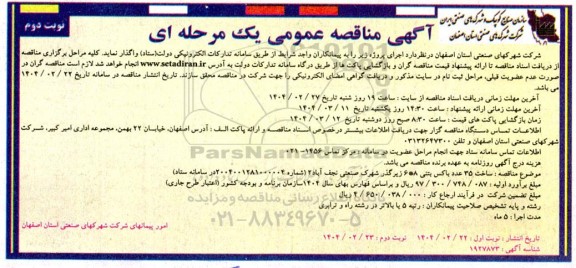 سازمان صنایع کوچک و شهرکهای صنعتی ایران
شرکت شهرکهای صنعتی استان اصفهان
آگهی مناقصه عمومی یک مرحله ای
نوبت دوم
شرکت شهرکهای صنعتی استان اصفهان درنظردارد اجرای پروژه زیر را به پیمانکاران واجد شرایط از طریق سامانه تدارکات الکترونیکی دولت(ستاد) واگذار نماید. کلیه مراحل برگزاری مناقصه
از دریافت اسناد مناقصه تا ارائه پیشنهاد قیمت مناقصه گران و بازگشایی پاکت ها از طریق درگاه سامانه تدارکات دولت به آدرس www.setadiran.ir انجام خواهد شد لازم است مناقصه گران در
صورت عدم عضویت قبلی، مراحل ثبت نام در سایت مذکور و دریافت گواهی امضای الکترونیکی را جهت شرکت در مناقصه محقق سازند. تاریخ انتشار مناقصه در سامانه تاریخ ۲۲ / ۰۲ / ۱۴۰۴
می باشد.
آخرین مهلت زمانی دریافت اسناد مناقصه از سایت : ساعت ۱۹ روز شنبه تاریخ ۲۷ / ۰۲ / ۱۴۰۴
آخرین مهلت زمانی ارائه پیشنهاد : ساعت ۱۴:۳۰ روز یکشنبه تاریخ ۱۱ / ۰۳ / ۱۴۰۴
زمان بازگشایی پاکت های قیمت : ساعت ۸:۳۰ صبح روز دوشنبه تاریخ ۱۲ / ۰۳ / ۱۴۰۴
اطلاعات تماس دستگاه مناقصه گزار جهت دریافت اطلاعات بیشتر درخصوص اسناد مناقصه و ارائه پاکت الف : آدرس اصفهان، خیابان ۲۲ بهمن، مجموعه اداری امیر کبیر، شرکت
شهرکهای صنعتی استان اصفهان و تلفن ۰۳۱۳۲۶۴۷۳۰۰
اطلاعات تماس سامانه ستاد جهت انجام مراحل عضویت در سامانه : مرکز تماس ۱۴۵۶-۰۲۱
هزینه درج آگهی روزنامه به عهده برنده مناقصه می باشد.
موضوع مناقصه : ساخت ۳۵ عدد باکس بتنی ۸*۶ زیرگذر شهرک صنعتی نجف آباد۲ (شماره ۲۰۰۴۰۰۱۲۸۱۰۰۰۰۰۴ در سامانه ستاد)
مبلغ برآورد اولیه : ۰۸۷ / ۷۴۸ / ۳۰۰ / ۹۷ ریال و براساس فهارس بهای سال ۱۴۰۴ سازمان برنامه و بودجه کشور (اعتبار طرح جاری)
مبلغ تضمین شرکت در فرآیند ارجاع کار : ۰۰۰ / ۰۳۸ / ۶۵۰ / ۴ ریال
رشته و پایه تشخیص صلاحیت پیمانکاران : رتبه ۵ یا بالاتر در رشته راه و ترابری
مدت اجرا : ۵ ماه
امور پیمانهای شرکت شهرکهای صنعتی استان اصفهان
تاریخ انتشار : نوبت اول : ۲۲ / ۰۲ / ۱۴۰۴ نوبت دوم : ۲۳ / ۰۲ / ۱۴۰۴
شناسه آگهی : ۱۹۲۷۸۷۳
ParsNamadData
۰۲۱-۸۸۳۴۹۶۷۰-۵